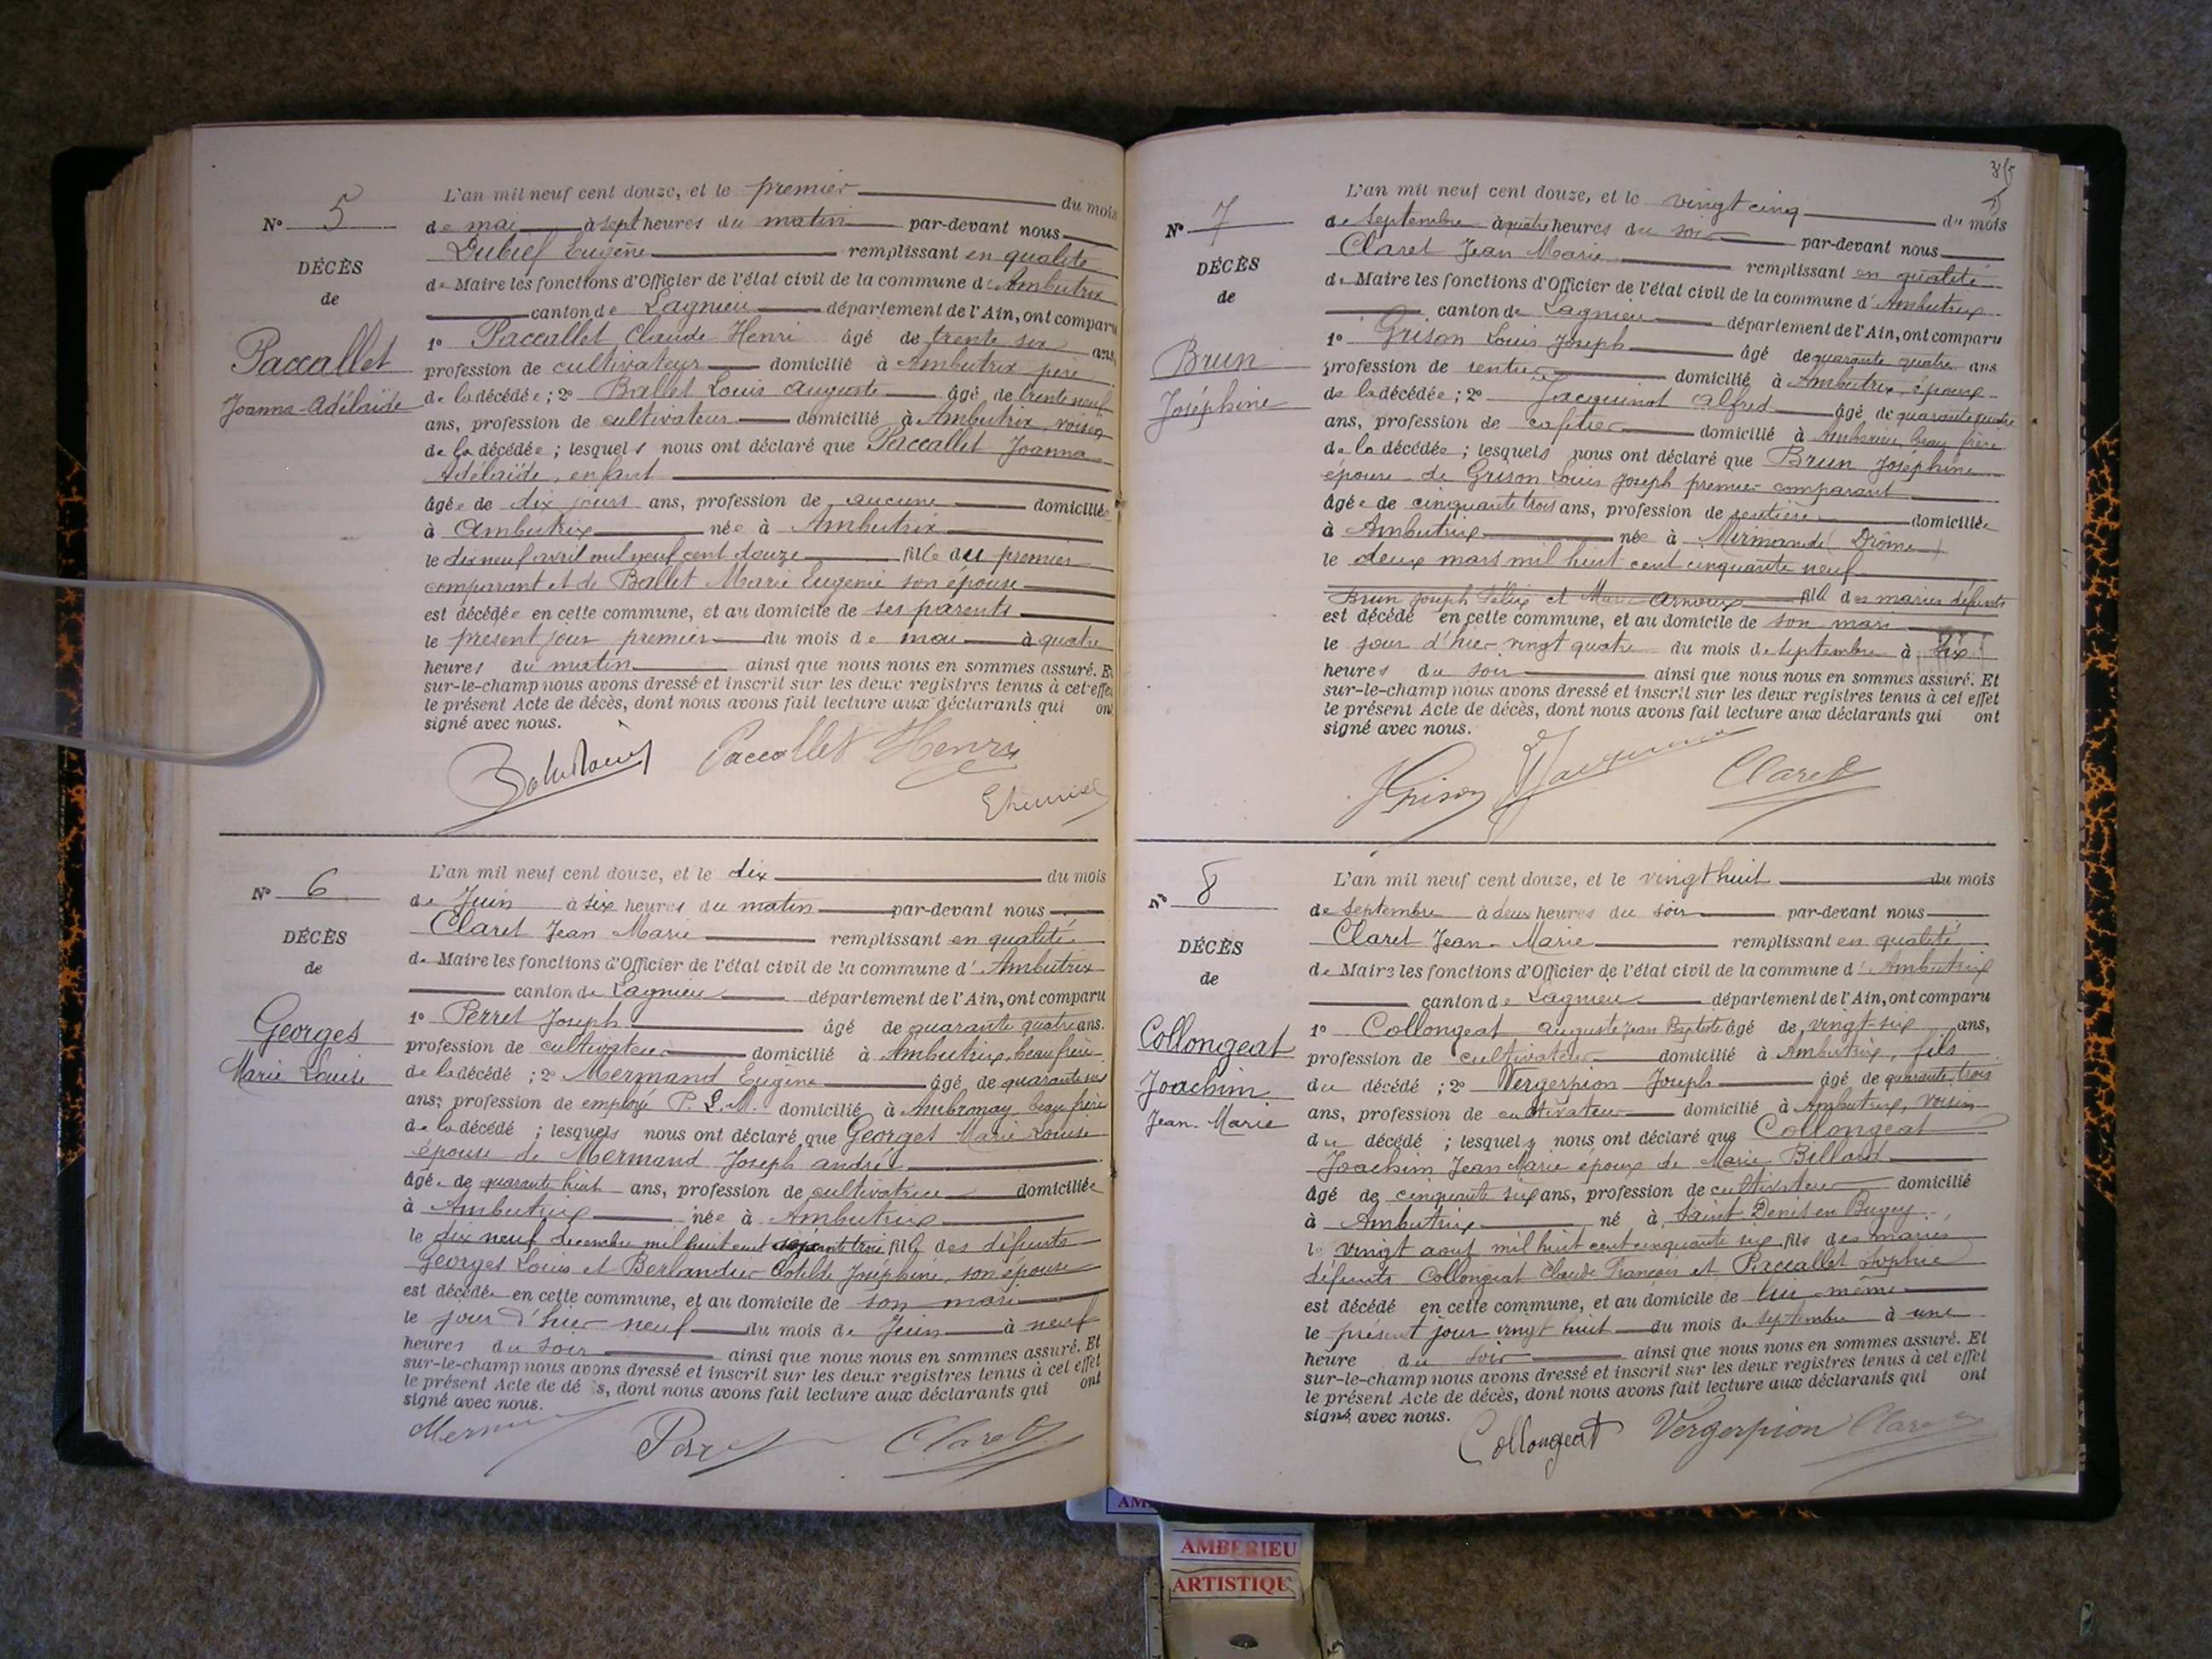 L'an mil neuf cent douze, et le premier du mois
N° 5
de mai à sept heures du matin par-devant nous
Dubief Eugène remplissant en qualité
DÉCÈS
de Maire les fonctions d'Officier de l'état civil de la commune d'Ambutrix
de
canton de Lagnieu département de l'Ain, ont comparu
1° Paccallet Claude Henri âgé de trente six ans,
Paccallet
profession de cultivateur domicilié à Ambutrix père
Joanna-Adélaïde
de la décédée ; 2° Ballet Louis Auguste âgé de trente neuf
ans, profession de cultivateur domicilié à Ambutrix, voisin
de la décédée ; lesquels nous ont déclaré que Paccallet Joanna
Adélaïde, enfant
âgée de dix jours ans, profession de aucune domiciliée
à Ambutrix née à Ambutrix
le dix neuf avril mil neuf cent douze fille du premier
comparant et de Ballet Marie Eugénie son épouse
est décédée en cette commune, et au domicile de ses parents
le présent jour premier du mois de mai à quatre
heures du matin ainsi que nous nous en sommes assuré. E
sur-le-champ nous avons dressé et inscrit sur les deux registres tenus à cet effet
le présent Acte de décès, dont nous avons fait lecture aux déclarants qui ont
signé avec nous.
Paccallet Henri
L'an mil neuf cent douze, et le dix du mois
N° 6
de Juin à six heures du matin par-devant nous
Claret Jean Marie remplissant en qualité
DÉCÈS
de Maire les fonctions d'Officier de l'état civil de la commune d'Ambutrix
de
canton de Lagnieu département de l'Ain, ont comparu
1° Perret Joseph âgé de quarante quatre ans.
Georges
profession de cultivateur domicilié à Ambutrix, beau frère
Marie Louise
de la décédé ; 2° Mermand Eugène âgé de quarante six
ans, profession de employé P. L. M. domicilié à Ambronay beau frère
de la décédé ; lesquels nous ont déclaré que Georges Marie Louise
épouse de Mermand Joseph André
âgée de quarante huit ans, profession de cultivatrice domiciliée
à Ambutrix née à Ambutrix
le dix neuf décembre mil huit cent soixante trois fille des défunts
Georges Louis et Berlandier Clotilde Joséphine, son épouse
est décédée en cette commune, et au domicile de son mari
le jour d'hier neuf du mois de Juin à neuf
heures du soir ainsi que nous nous en sommes assuré. Et
sur-le-champ nous avons dressé et inscrit sur les deux registres tenus à cet effet
le présent Acte de décès, dont nous avons fait lecture aux déclarants qui ont
signé avec nous.
Perret Claret
L'an mil neuf cent douze, et le vingt cinq du mois
N° 7
de septembre à quatre heures du soir par-devant nous
Claret Jean Marie remplissant en qualité
DÉCÈS
de Maire les fonctions d'Officier de l'état civil de la commune d'Ambutrix
de
canton de Lagnieu département de l'Ain, ont comparu
1° Grison Louis Joseph âgé de quarante quatre ans
Brun
profession de rentier domicilié à Ambutrix, époux
Joséphine
de la décédée ; 2° Jacquinot Alfred âgé de quarante quatre
ans, profession de cafetier domicilié à Ambérieu, beau frère
de la décédée ; lesquels nous ont déclaré que Brun Joséphine
épouse de Grison Louis Joseph premier comparant
âgée de cinquante trois ans, profession de rentière domiciliée
à Ambutrix née à Mirmande (Drôme)
le deux mars mil huit cent cinquante neuf
Brun Joseph Félix et Marie Arnoux fille des mariés défunts
est décédé en cette commune, et au domicile de son mari
le jour d'hier vingt quatre du mois de septembre à six
heures du soir ainsi que nous nous en sommes assuré. Et
sur-le-champ nous avons dressé et inscrit sur les deux registres tenus à cet effet
le présent Acte de décès, dont nous avons fait lecture aux déclarants qui ont
signé avec nous.
Grison Jacquinot Claret
L'an mil neuf cent douze, et le vingt huit du mois
N° 8
de septembre à deux heures du soir par-devant nous
Claret Jean-Marie remplissant en qualité
DÉCÈS
de Maire les fonctions d'Officier de l'état civil de la commune d'Ambutrix
de
canton de Lagnieu département de l'Ain, ont comparu
1° Collongeat Auguste Jean Baptiste âgé de vingt-six ans,
Collongeat
profession de cultivateur domicilié à Ambutrix, fils
Joachim
du décédé ; 2° Vergerpion Joseph âgé de quarante-trois
Jean-Marie
ans, profession de cultivateur domicilié à Ambutrix, voisin
du décédé ; lesquels nous ont déclaré que Collongeat
Joachim Jean Marie époux de Marie Billard
âgé de cinquante six ans, profession de cultivateur domicilié
à Ambutrix né à Saint-Denis en Bugey
le vingt aout mil huit cent cinquante six fils des mariés
défunts Collongeat Claude François et Paccallet Sophie
est décédé en cette commune, et au domicile de lui-même
le présent jour vingt huit du mois de septembre à une
heure du soir ainsi que nous nous en sommes assuré. Et
sur-le-champ nous avons dressé et inscrit sur les deux registres tenus à cet effet
le présent Acte de décès, dont nous avons fait lecture aux déclarants qui ont
signé avec nous.
Collongeat Vergerpion Claret
AMBERIEU
ARTISTIQU